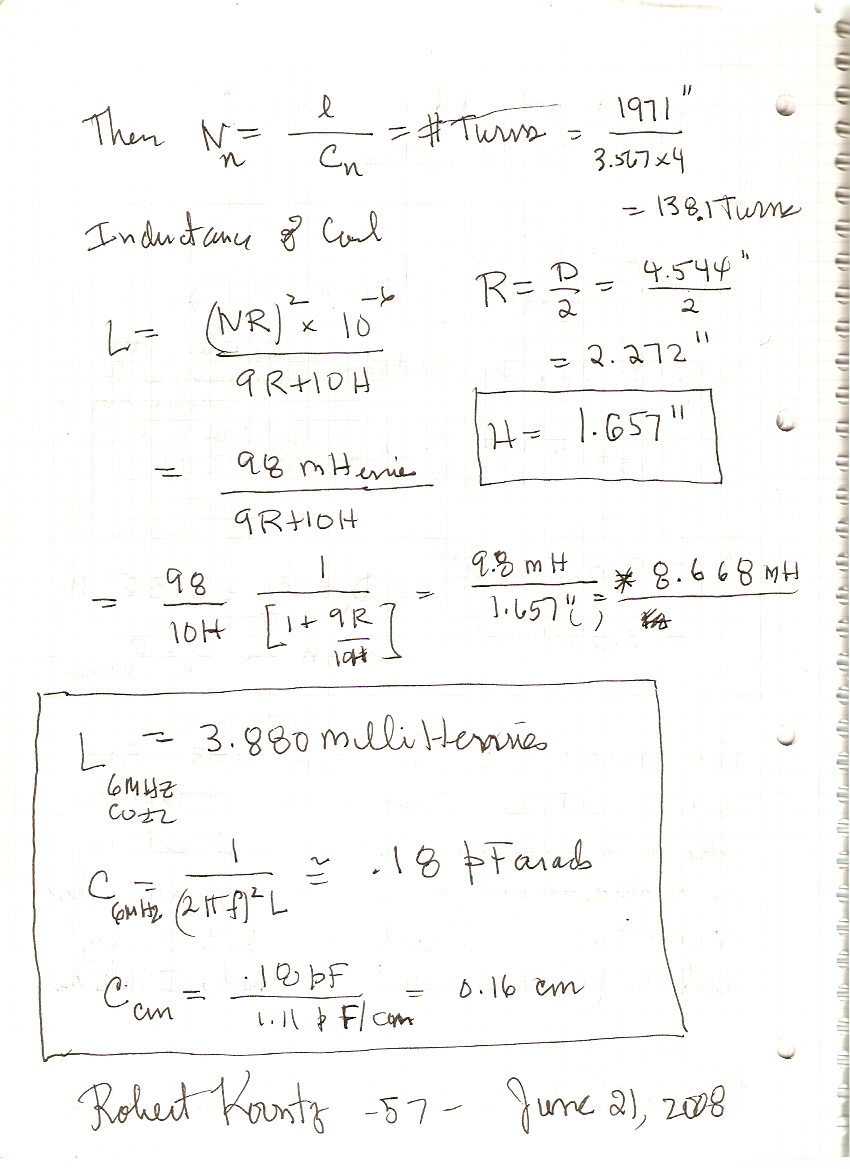 Then N_n = l / C_n = # Turns = 1971" / 3.567x4
= 138.1 Turns
Inductance of Coil
L = (NR)² x 10⁻⁶ / 9R+10H
R = D/2 = 4.544" / 2
= 2.272"
H = 1.657"
= 98 mHenries / 9R+10H
= 98 / 10H 1 / [1 + 9R/10H] = 9.8 mH / 1.657" ( ) = * 8.668 mH
L 6MHZ COIL = 3.880 milliHenries
C 6MHz = 1 / (2πf)² L ≅ .18 pFarads
C cm = .18 pF / 1.11 pF/cm = 0.16 cm
Robert Koontz -57- June 21, 2008